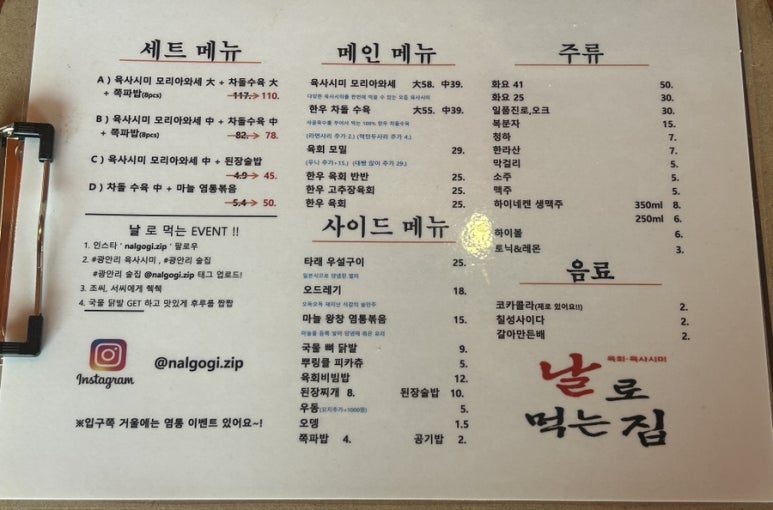 세트 메뉴
A ) 육사시미 모리아와세 大 + 차돌수육 大
+ 쪽파밥(8pcs) 117. → 110.
B ) 육사시미 모리아와세 中 + 차돌수육 中
+ 쪽파밥(8pcs) 82. → 78.
C ) 육사시미 모리아와세 中 + 된장술밥
4.9 → 45.
D ) 차돌 수육 中 + 마늘 염통볶음
5.4 → 50.
날 로 먹는 EVENT !!
1. 인스타 ' nalgogi.zip ' 팔로우
2. #광안리 육사시미 , #광안리 술집
#광안리 술집 @nalgogi.zip 태그 업로드!
3. 조씨, 서씨에게 쉑쉑
4. 국물 닭발 GET 하고 맛있게 후루룹 짭짭
Instagram
@nalgogi.zip
※입구쪽 거울에는 염통 이벤트 있어요~!
메인 메뉴
육사시미 모리아와세 大58. 中39.
다양한 육사시미를 한번에 먹을 수 있는 모듬 육사시미
한우 차돌 수육 大55. 中39.
사골육수를 부어서 먹는 100% 한우 차돌수육
(라면사리 추가 2.) (떡만두사리 추가 4.)
육회 모밀 29.
(우니 추가+15.) (대빵 많이 추가 29.)
한우 육회 반반 25.
한우 고추장육회 25.
한우 육회 25.
사이드 메뉴
타래 우설구이 25.
일본식으로 양념된 별미
오드레기 18.
오독오독 돼지난 식감의 술안주
마늘 왕창 염통볶음 15.
마늘을 듬뿍 넣어 양념에 볶은 요리
국물 뼈 닭발 9.
뿌링클 피카츄 5.
육회비빔밥 12.
된장찌개 8. 된장술밥 10.
우동(꼬치추가+1000원) 5.
오뎅 1.5
쪽파밥 4. 공기밥 2.
주류
화요 41 50.
화요 25 30.
일품진로,오크 30.
복분자 15.
청하 7.
한라산 7.
막걸리 5.
소주 5.
맥주 5.
하이네켄 생맥주 350ml 8.
250ml 6.
하이볼 6.
토닉&레몬 3.
음료
코카콜라(제로 있어요!!) 2.
칠성사이다 2.
갈아만든배 2.
육회·육사시미
날로
먹는 집